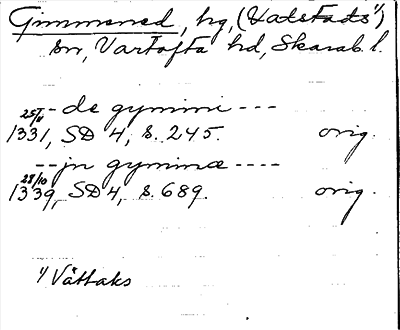 Gimmened, hg, (Valstads 1/)
sn, Vartofta hd, Skarab. l.
-- de gymmi ---
25/2
1331, SD 4, s. 245. orig.
-- jn gyminæ ----
28/10
1339, SD 4, s. 689. orig.
1/ Våttaks